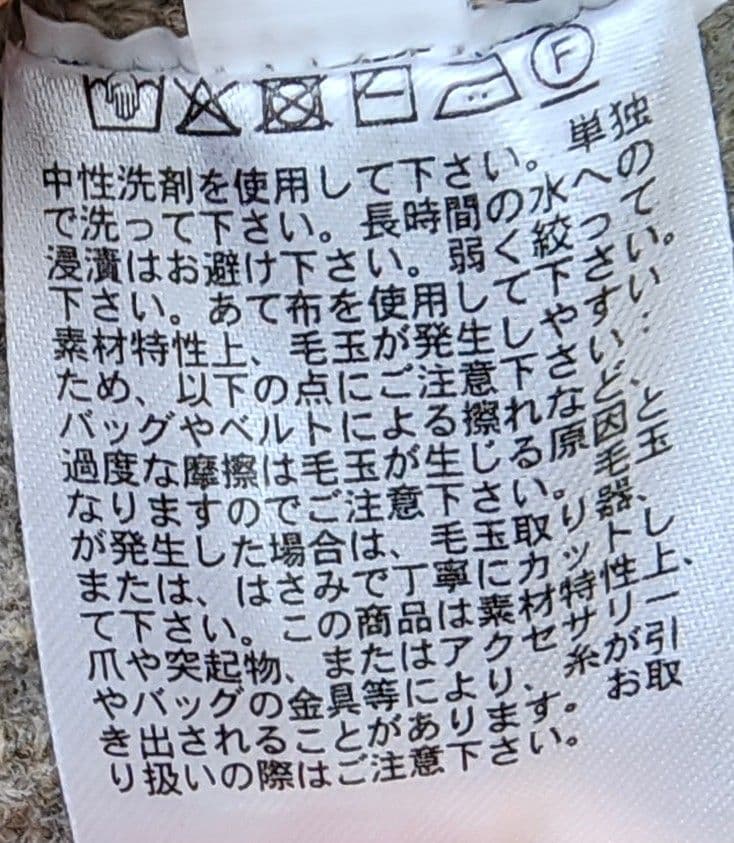 F
中性洗剤を使用して下さい。単独
で洗って下さい。長時間の水への
浸漬はお避け下さい。弱く絞って
下さい。あて布を使用して下さい。
素材特性上、毛玉が発生しやすい
ため、以下の点にご注意下さい：
バッグやベルトによる擦れなど、
過度な摩擦は毛玉が生じる原因と
なりますのでご注意下さい。毛玉
が発生した場合は、毛玉取り器、
または、はさみで丁寧にカットし
て下さい。この商品は素材特性上、
爪や突起物、またはアクセサリー
やバッグの金具等により、糸が引
き出されることがあります。お取
り扱いの際はご注意下さい。